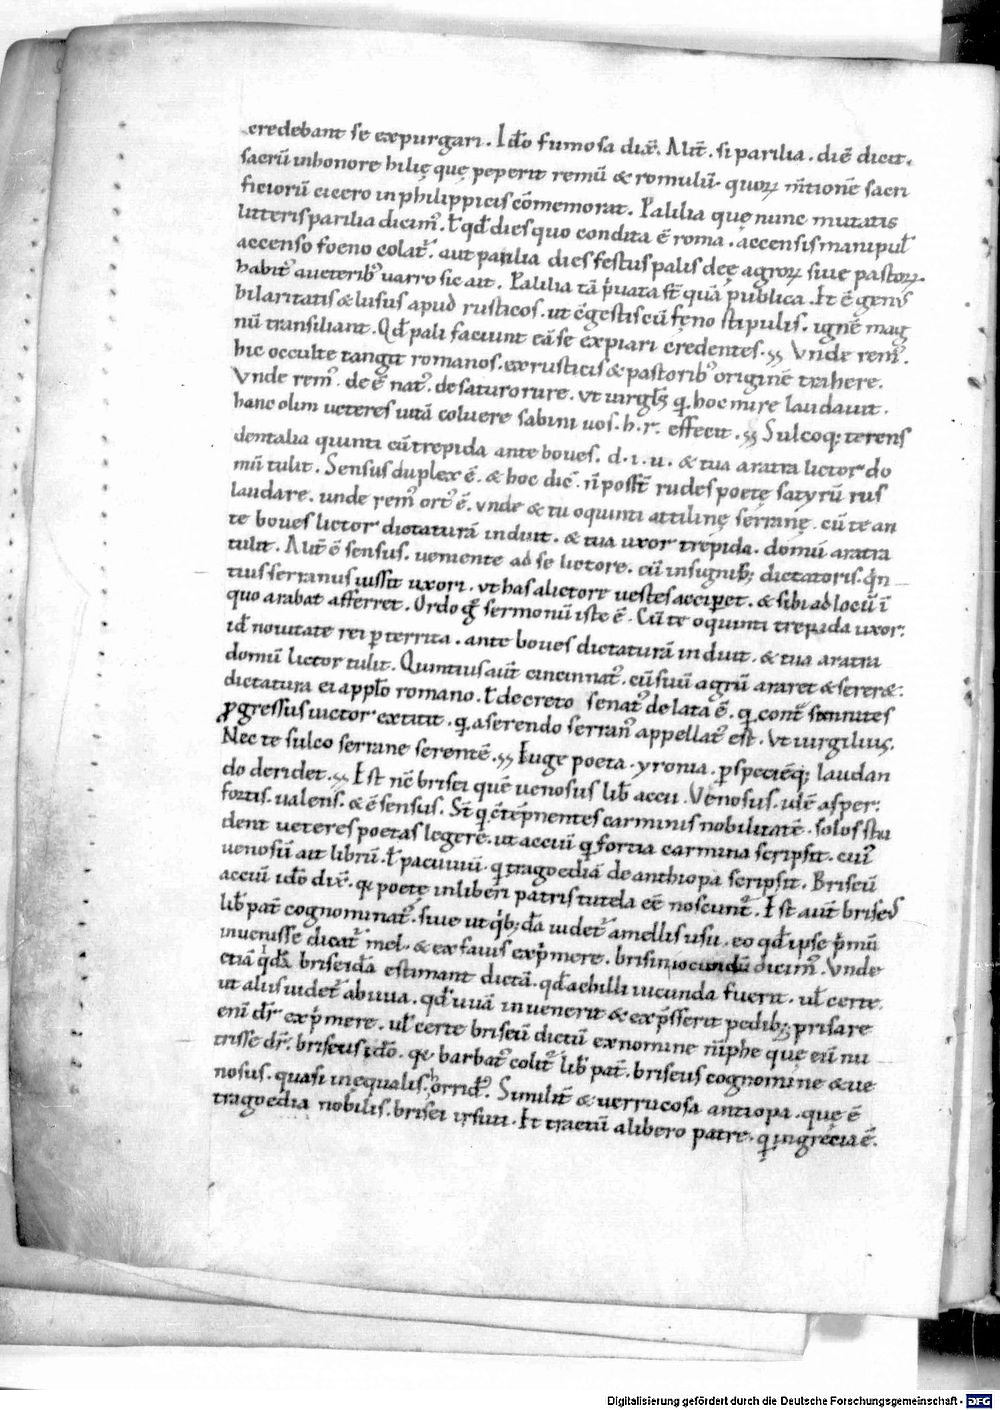 credebant se expurgari. Idō fumosa dix̄. Aut̄. si parilia. diē dicit.
sacrū in honore hilię quę peperit remū & romulū. quoꝝ m̄tionē sacri
ficiorū cicero in philippicis cōmemorat. Palilia quę nunc mutatis
litteris parilia dicim᷒. ł qđ dies quo condita ē roma. accensis manipuł
accenso foeno colat᷑. aut parilia dies festus palis deę agroꝝ siue pastoꝝ.
habit᷒ a ueterib᷒ uarro sic ait. Palilia tā p̓uata st̄ quā publica. Et ē gen᷒
hilaritatis & lusus apud rusticos. ut c̄gestis cū fęno stipulis. ignē mag
nū transiliant. Qđ pali faciunt eā se expiari credentes. Vnde rem᷒.
hic occulte tangit romanos. ex rusticis & pastorib᷒ originē trahere.
Vnde rem᷒. de ē nat᷒. de saturo rure. vt uirgił q̨ hoc mire laudauit.
hanc olim ueteres uitā coluere sabini uos. h. r. effecit. Sulcoq; terens
dentalia quinti cū trepida ante boues. d. i. u. & tua aratra lictor do
mū tulit. Sensus duplex ē. & hoc dic̄. n̄ post̄ rudes poetę satyrū rus
laudare. unde rem᷒ ort᷒ ē. vnde & tu o quinti attilinę serranę. cū te an
te boues lictor dictaturā induit. & tua uxor trepida. domū aratra
tulit. Aut̄ ē sensus. ueniente ad se lictore. cū insignib; dictatoris. q̓n
tius serranus iussit uxori. vt has a lictore uestes acciperet. & sibi ad locū ī
quo arabat afferret. Ordo ḡ sermonū iste ē. Cū te o quinti trepida uxor.
id nouitate rei p territa. ante boues dictaturā induit. & tua aratra
domū lictor tulit. Quintius aut̄ cincinnat᷒. cū suū agrū araret & sereret.
dictatura ei a pplo romano. ł decreto senat᷒ delata ē. q̨ cont̄ samnites
ꝓgressus uictor extitit. q̨ a serendo serran᷒ appellat᷒ est. Vt uirgilius.
Nec te sulco serrane serentē. Euge poeta. yronia. p speciēq; laudan
do deridet. Est nc̄ brisei quē uenosus lib̄ accii. Venosus. idē asper.
fortis. ualens. & ē sensus. St̄ q̨ c̄tēpnentes carminis nobilitatē. solos stu
dent ueteres poetas legere. ut acciū q̨ fortia carmina scripsit. cui᷒
uenosū ait librū. ł pacuuiū. q̨ tragoediā de anthiopa scripsit. Briseū
acciū idō dix̄. qa poetę in liberi patris tutela eē noscunt᷑. Est aut̄ brise᷒
lib̄ pat̄ cognominat᷒. siue ut q̓b; dā uidet᷑ a mellis usu. eo qđ ipse p̓mū
inuenisse dicat᷑ mel. & ex fauis exp̓mere. brisin iocundū dicim᷒. Vnde
etiā q̓dā briseidā estimant dictā. qđ achilli iucunda fuerit. uł certe.
ut aliis uidet᷑ ab uua. qđ uuā inuenerit & exp̄sserit pedib; prisare
enī dr̄ exp̓mere. uł certe briseū dictū ex nomine nīphe que eū nu
trisse dr̄. briseus idō. qa barbat᷒ colit᷑ lib̄ pat̄. briseus cognomine & ue
nosus. quasi inęqualis. horrid᷒. Similit̄ & uerrucosa antiopa. que ē
tragoedia nobilis. brisei irsuti. Et tractū a libero patre. q̨ in grecia ē.
Digitalisierung gefördert durch die Deutsche Forschungsgemeinschaft - DFG